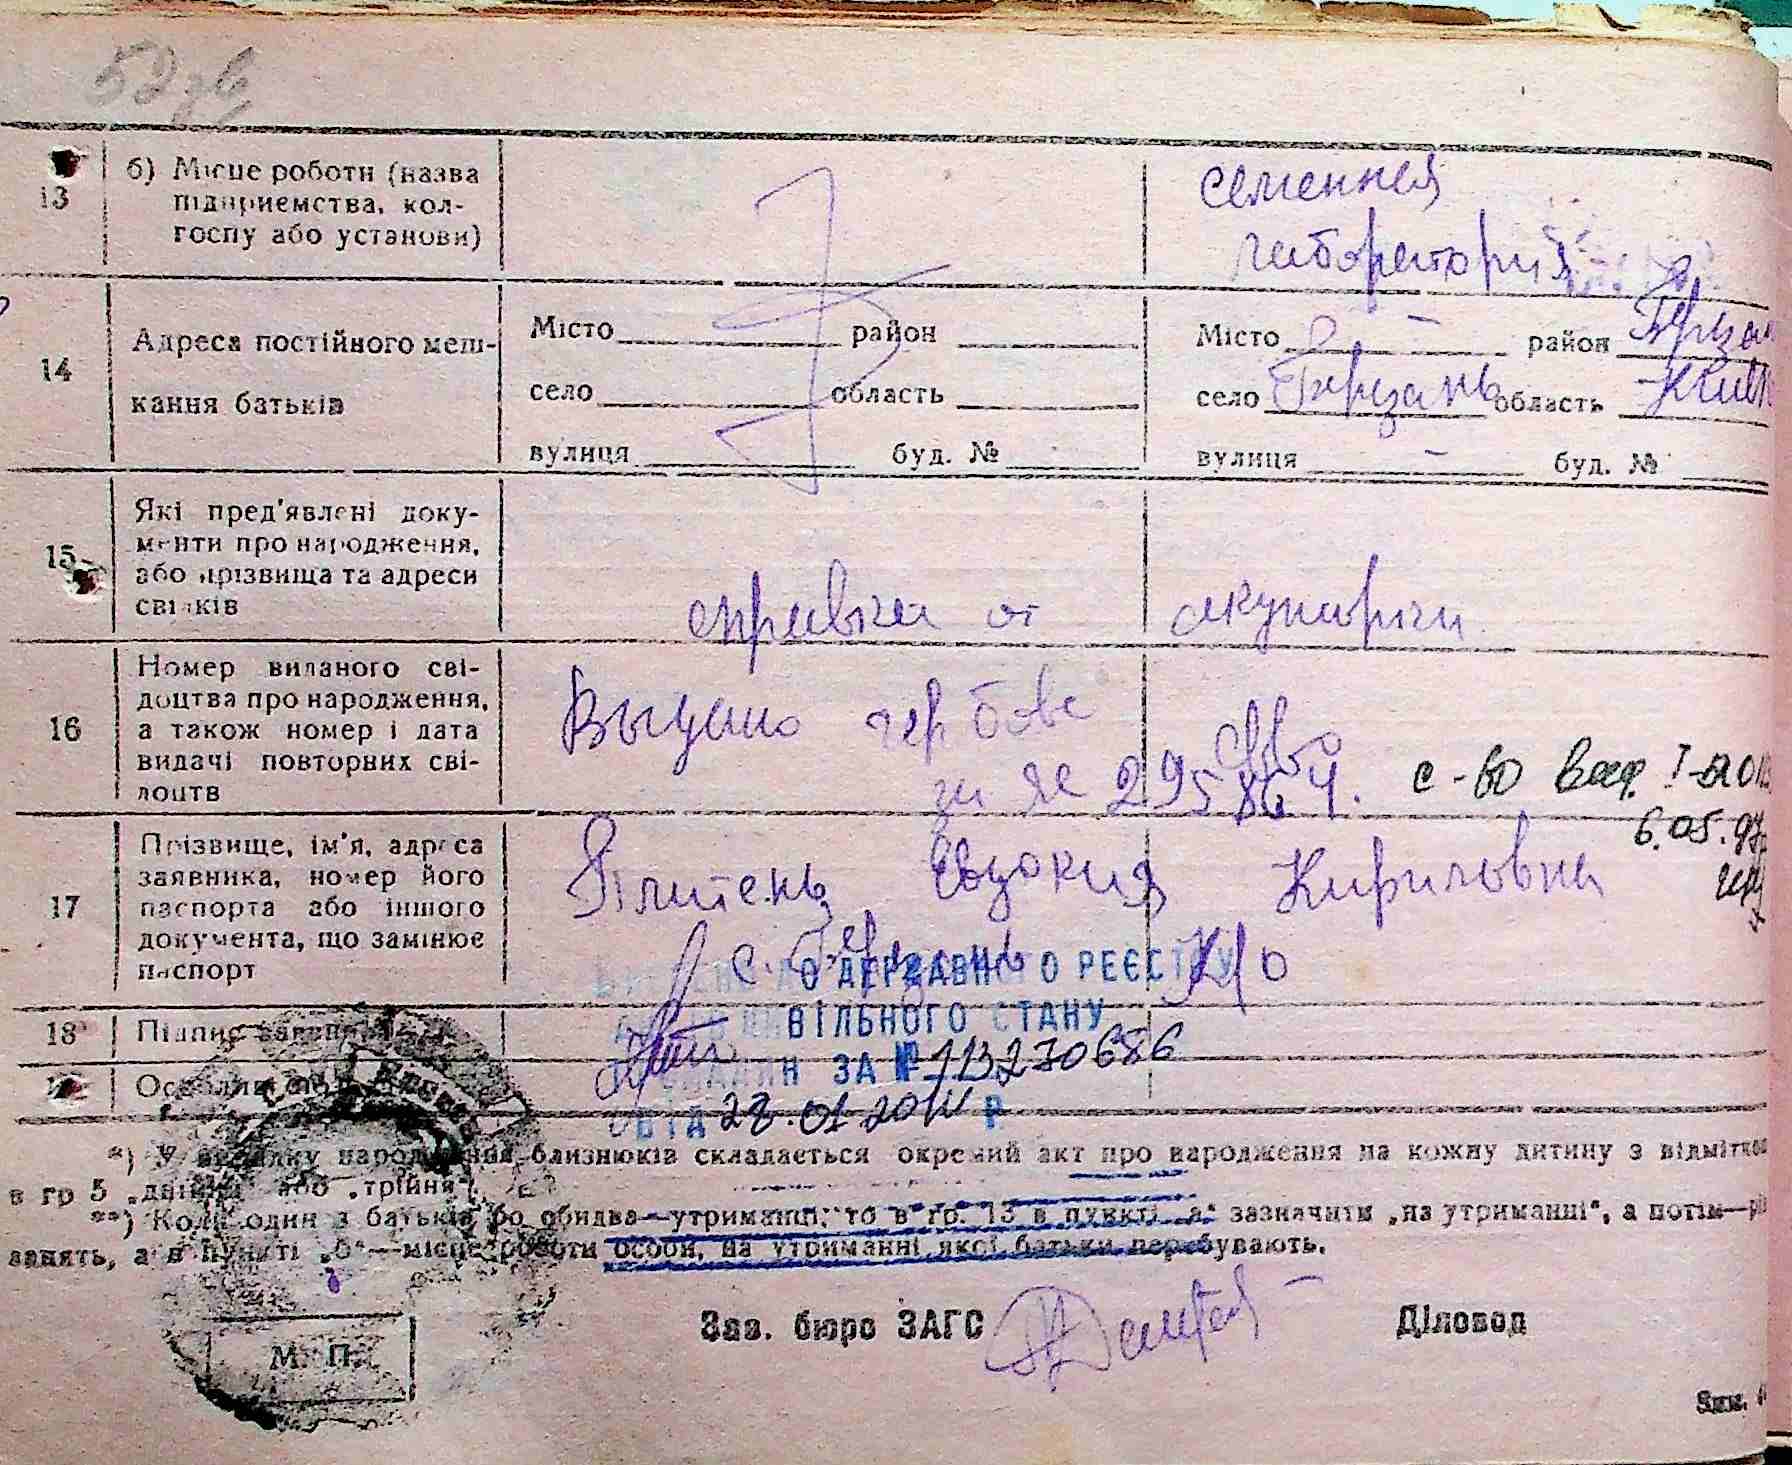 52
13 б) Місце роботи (назва
підприємства, кол-
госпу або установи)
семенная
лаборатория
14 Адреса постійного меш-
кання батьків
Місто район
село область
вулиця буд. №
Місто - район
село Березань область
вулиця - буд. №
15 Які пред'явлені доку-
менти про народження,
або прізвища та адреси
свідків
справка от акушерки
16 Номер виданого сві-
доцтва про народження,
а також номер і дата
видачі повторних сві-
доцтв
Выдано гербове
за № 295864. с-во І-
6.05.97
17 Прізвище, ім'я, адреса
заявника, номер його
паспорта або іншого
документа, що замінює
паспорт
Плитень Евдокия Кириловна
с. Березань К/о
О ДЕРЖАВНОГО РЕЄСТРУ
18 Підпис
ВІЛЬНОГО СТАНУ
ЗА № 113270686
Особливі
ВІД 28.01.20 Р
*) У випадку народження близнюків складається окремий акт про народження на кожну дитину з відміткою
в гр 5 „двійня" або „трійня".
**) Коли один з батьків бо обидва—утриманці, то в гр. 13 в пункті „а" зазначити „на утриманні", а потім—рід
занять, а в пункті „б"—місце роботи особи, на утриманні якої батьки перебувають.
Зав. бюро ЗАГС Діловод
М. П.
Зам.